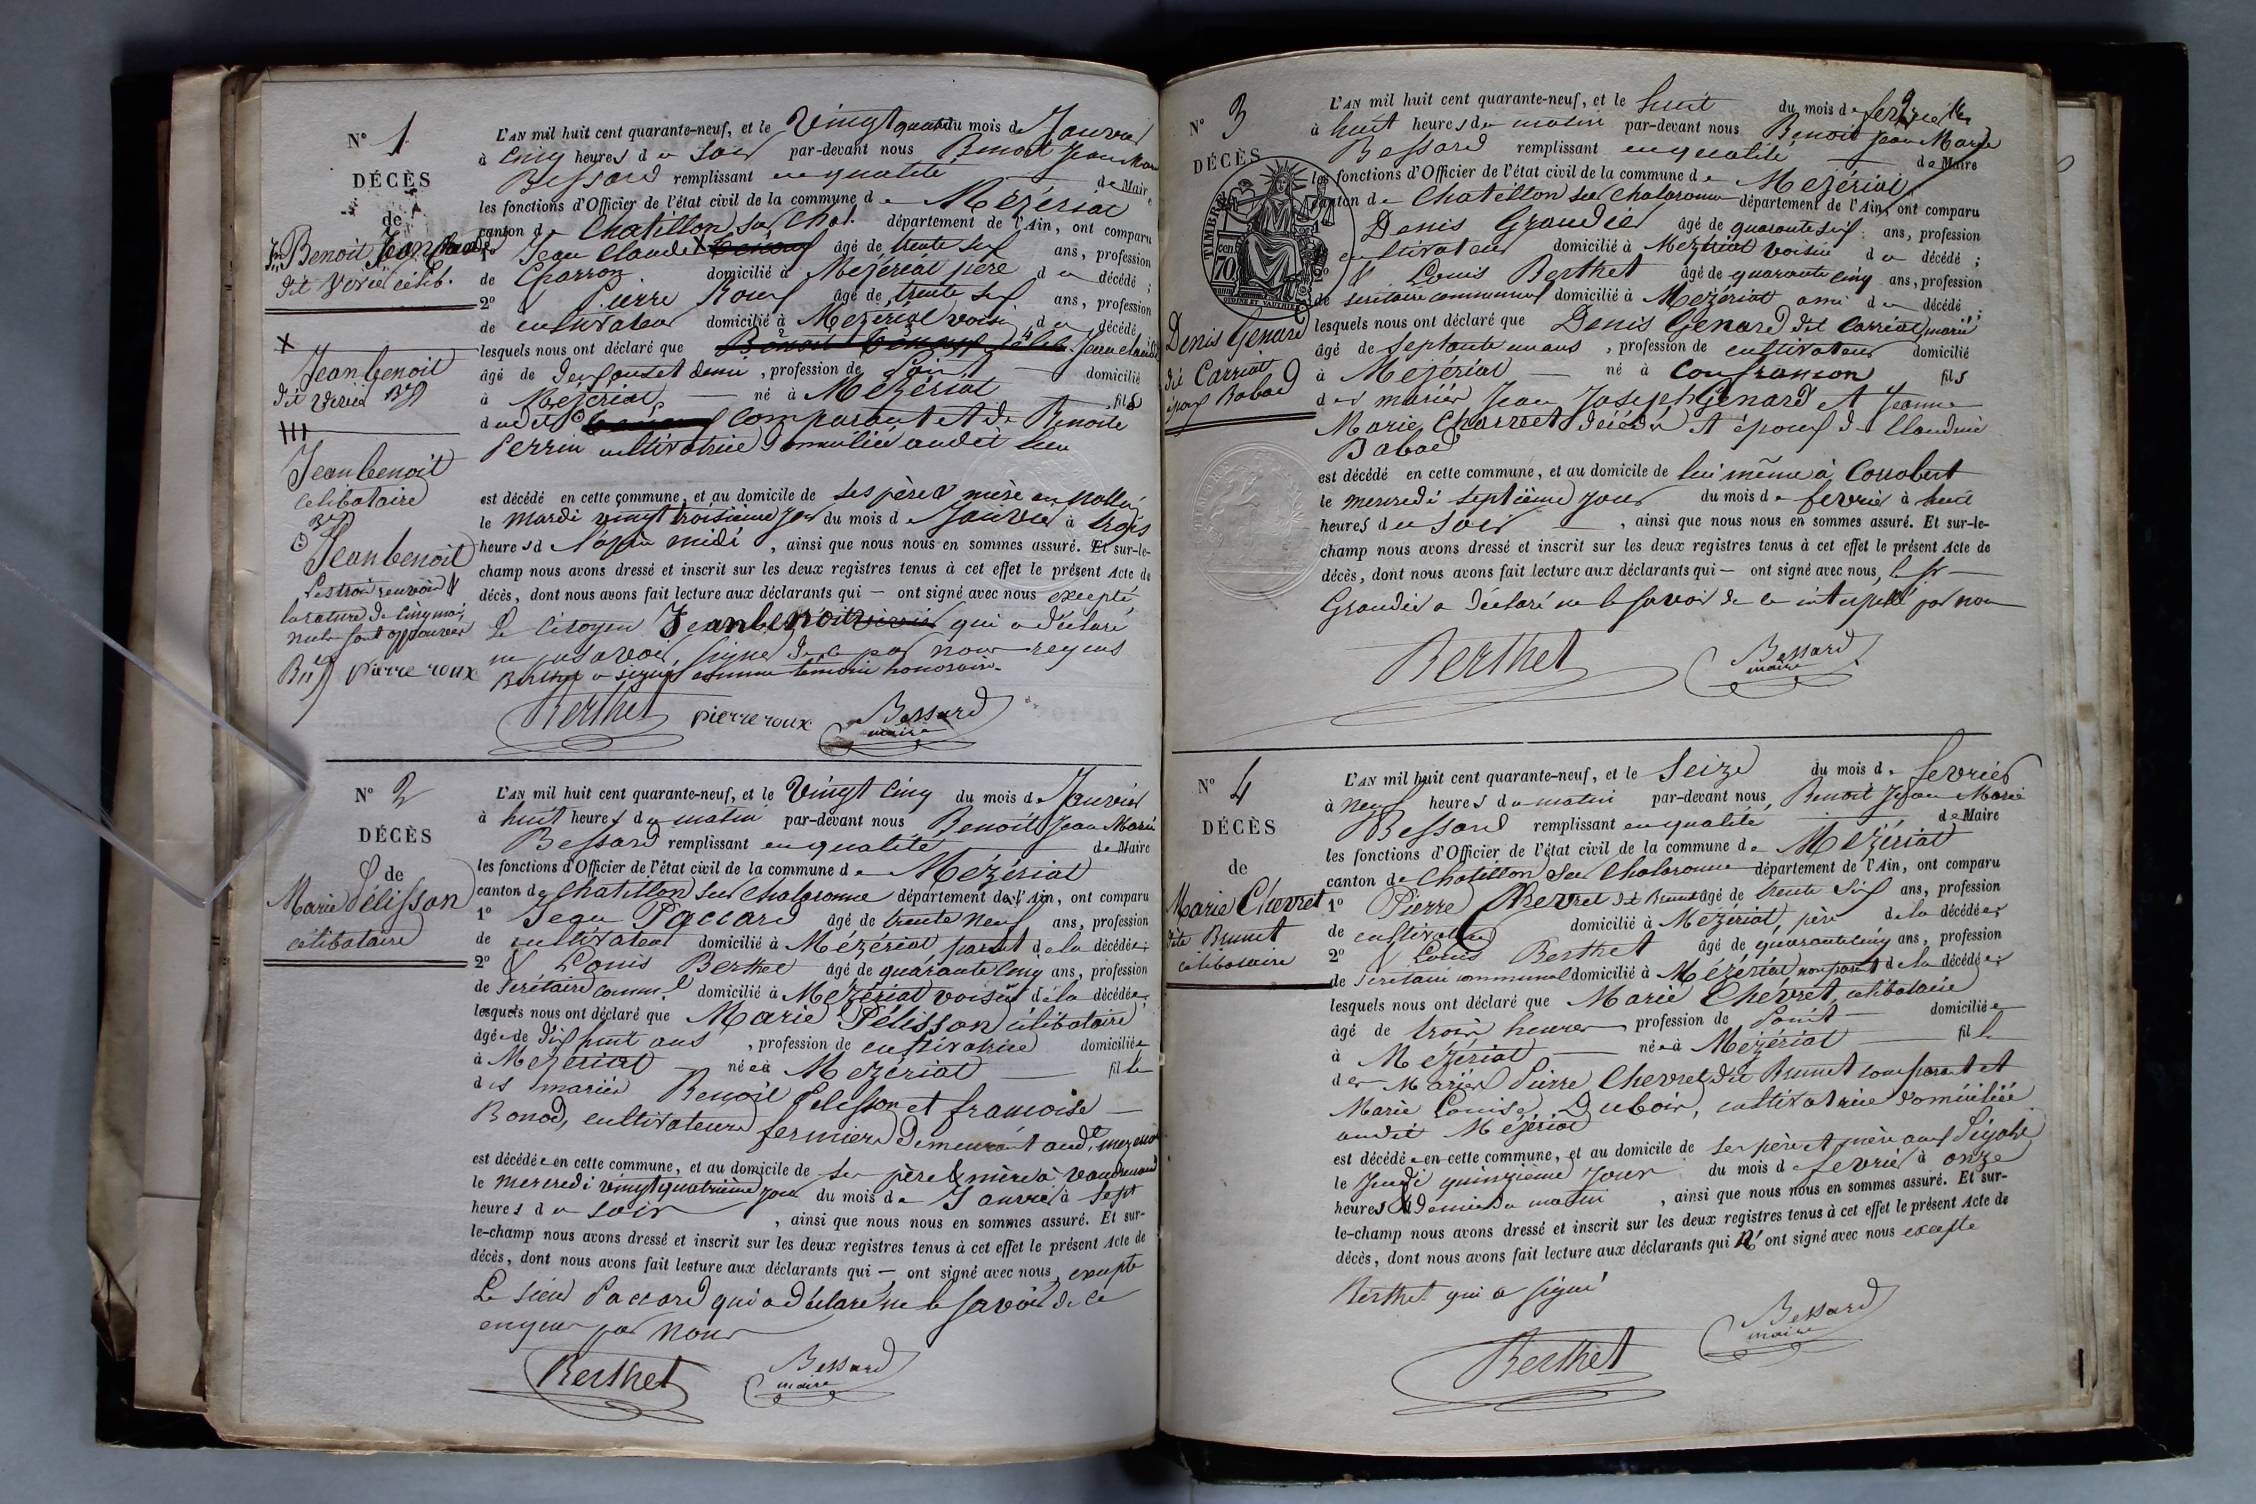 N° 1
DÉCÈS
de
Benoit Jean Claude
dit Verié célib.
L'AN mil huit cent quarante-neuf, et le Vingt quatre du mois de Janvier
à Cinq heures du Soir par-devant nous Benoit Jean Marie
Bessard remplissant en qualité de Maire
les fonctions d'Officier de l'état civil de la commune de Mézériat
canton de Chatillon sur Chal. département de l'Ain, ont comparu
1° Jean Claude X âgé de trente six ans, profession
de Charron domicilié à Mézériat père du décédé ;
2° Pierre Roux âgé de trente six ans, profession
de cultivateur domicilié à Mézériat voisin du décédé,
lesquels nous ont déclaré que Jean Claude
âgé de deux ans et demi, profession de Point domicilié
à Mézériat né à Mézériat fils
dudit comparant et de Benoite
Perrin cultivatrice domiciliée audit lieu
est décédé en cette commune, et au domicile de ses père & mère
le mardi vingt troisième jour du mois de Janvier à trois
heures d l'après midi, ainsi que nous nous en sommes assuré. Et sur-le-
champ nous avons dressé et inscrit sur les deux registres tenus à cet effet le présent Acte de
décès, dont nous avons fait lecture aux déclarants qui — ont signé avec nous excepté
Le citoyen Jean benoit qui a déclaré
ne pas savoir signer de ce par nous requis
Berthet a signé comme témoin honoraire.
Berthet pierre roux Bessard
maire
X
Jean benoit
dit Verié
Jean benoit
célibataire
Jean benoit
Les trois renvois &
la rature de cinq mots
nuls sont approuvés
pierre roux
N° 2
DÉCÈS
de
Marie Pélisson
célibataire
L'AN mil huit cent quarante-neuf, et le Vingt cinq du mois de Janvier
à huit heures du matin par-devant nous Benoit Jean Marie
Bessard remplissant en qualité de Maire
les fonctions d'Officier de l'état civil de la commune de Mézériat
canton de Chatillon sur Chalaronne département de l'Ain, ont comparu
1° Jean Paccard âgé de trente neuf ans, profession
de cultivateur domicilié à Mézériat parent de la décédée ;
2° Louis Berthet âgé de quarante cinq ans, profession
de Secrétaire comm.l domicilié à Mézériat voisin de la décédée,
lesquels nous ont déclaré que Marie Pélisson célibataire
âgée de dix huit ans, profession de cultivatrice domiciliée
à Mézériat née à Mézériat fille
des mariés Benoit Pelisson et françoise
Bonod, cultivateurs fermiers demeurant aud.t mezeriat
est décédée en cette commune, et au domicile de ses père & mère à
le mercredi vingt quatrième jour du mois de Janvier à Sept
heures du soir, ainsi que nous nous en sommes assuré. Et sur-
le-champ nous avons dressé et inscrit sur les deux registres tenus à cet effet le présent Acte de
décès, dont nous avons fait lecture aux déclarants qui — ont signé avec nous, excepté
Le sieur Paccard qui a déclaré ne le savoir de ce
enquis par Nous
Berthet Bessard
maire
N° 3
DÉCÈS
TIMBRE
cen 70
Denis Genard
dit Carriat
époux Babad
L'AN mil huit cent quarante-neuf, et le huit du mois de fevrier
à huit heures du matin par-devant nous Benoit Jean Marie
Bessard remplissant en qualité de Maire
les fonctions d'Officier de l'état civil de la commune de Mézériat
canton de Chatillon sur Chalaronne département de l'Ain, ont comparu
Denis Grandié âgé de quarante six ans, profession
cultivateur domicilié à Mézériat voisin du décédé ;
2° Louis Berthet âgé de quarante cinq ans, profession
de secrétaire communal domicilié à Mézériat ami du décédé ;
lesquels nous ont déclaré que Denis Genard dit Carriat marié
âgé de septante un ans, profession de cultivateur domicilié
à Mézériat né à Confrançon fils
des mariés Jean Joseph Genard et Jeanne
Marie Charvet décédés et époux de Claudine
Babad
est décédé en cette commune, et au domicile de lui même à Conobert
le mercredi septième jour du mois de fevrier à huit
heures du soir, ainsi que nous nous en sommes assuré. Et sur-le-
champ nous avons dressé et inscrit sur les deux registres tenus à cet effet le présent Acte de
décès, dont nous avons fait lecture aux déclarants qui — ont signé avec nous, le sr
Grandié a déclaré ne le savoir de ce interpellé par nous
Berthet Bessard
maire
N° 4
DÉCÈS
de
Marie Chevret
dite Brunet
célibataire
L'AN mil huit cent quarante-neuf, et le Seize du mois de fevrier
à neuf heures du matin par-devant nous, Benoit Jean Marie
Bessard remplissant en qualité de Maire
les fonctions d'Officier de l'état civil de la commune de Mézériat
canton de Chatillon sur Chalaronne département de l'Ain, ont comparu
1° Pierre Chevret dit Brunet âgé de trente six ans, profession
de cultivateur domicilié à Mézériat, père de la décédée ;
2° Louis Berthet âgé de quarante cinq ans, profession
de secrétaire communal domicilié à Mézériat non parent de la décédée ;
lesquels nous ont déclaré que Marie Chevret, célibataire
âgé de trois heures profession de Point domiciliée
à Mézériat née à Mézériat fille
des Mariés Pierre Chevret dit Brunet comparant et
Marie Louise Duboin, cultivatrice domiciliée
audit Mézériat
est décédée en cette commune, et au domicile de ses père et mère aux
le Jeudi quinzième jour du mois de fevrier à onze
heures & demie du matin, ainsi que nous nous en sommes assuré. Et sur-
le-champ nous avons dressé et inscrit sur les deux registres tenus à cet effet le présent Acte de
décès, dont nous avons fait lecture aux déclarants qui n'ont signé avec nous excepté
Berthet qui a signé
Berthet Bessard
maire